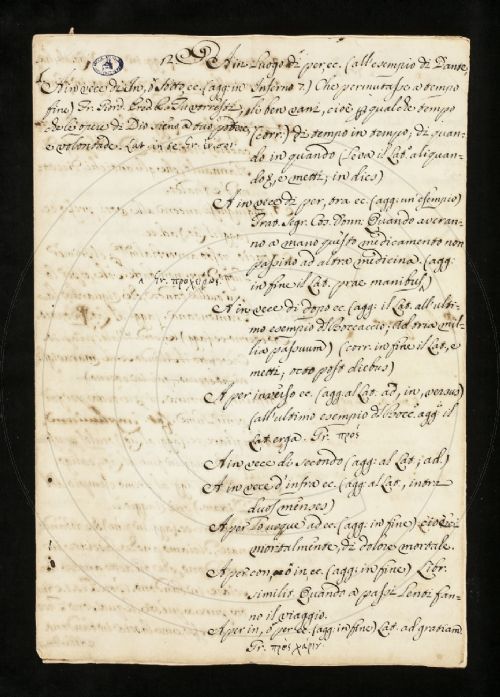 12
A in luogo di per, ec. (all'esempio di Dante,
Inferno 7.) Che permutasse a tempo
li ben vani, cioè
(corr.) di tempo in tempo; di quan-
do in quando (leva il Lat. aliquan-
do, e metti, in dies)
A in vece di per, tra ec. (agg. un esempio)
Trat. Segr. Cos. Donn. Quando averan-
no a mano questo medicamento non
passino ad altra medicina. (agg.
in fine il Lat. prae manibus
A in vece di dopo ec. (agg. il Lat. all'ulti-
mo esempio di Boccaccio; ad tria mil-
lia passuum) (corr. in fine il Lat. e
metti, octo post diebus)
A per inverso ec. (agg. al Lat. ad, in, versus)
(all'ultimo esempio di Bocc. agg. il
Lat. erga. Gr. πρός
A in vece di secondo (agg. al Lat. ad.)
A in vece d'infra ec. (agg. al Lat. intra
duos menses)
A per lo ad ec. (agg. in fine) cioè
mortalmente, di dolore mortale.
A per con, o in ec. (agg. in fine) Libr.
similit. Quando a passi lenti fan-
no il viaggio.
A per in, o per ec. (agg. in fine) Lat. ad gratiam
Gr. πρὸς χάριν
A in vece di In, o Sotto ec. (agg. in
fine) Fr. Giord. Pred.
di Dio sieno a tuo podere,
e volontade. Lat. in
Gr. προχείρως